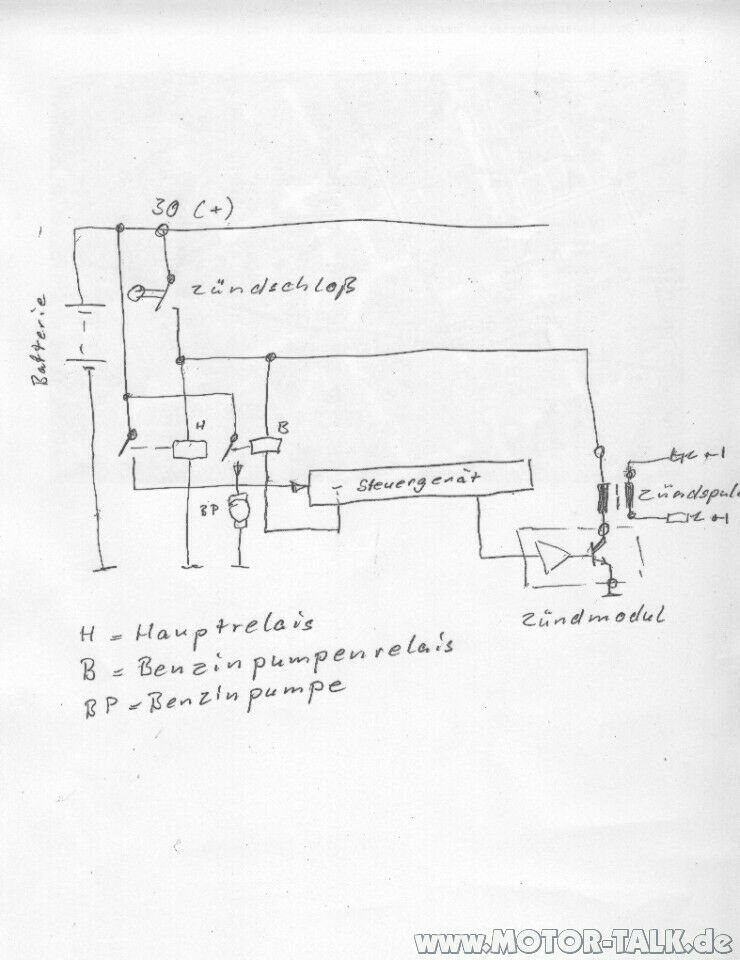 30 (+)
Zündschloß
Batterie
H
B
Steuergerät
BP
Zündspule
Zündmodul
H = Hauptrelais
B = Benzinpumpenrelais
BP = Benzinpumpe
www.MOTOR-TALK.de